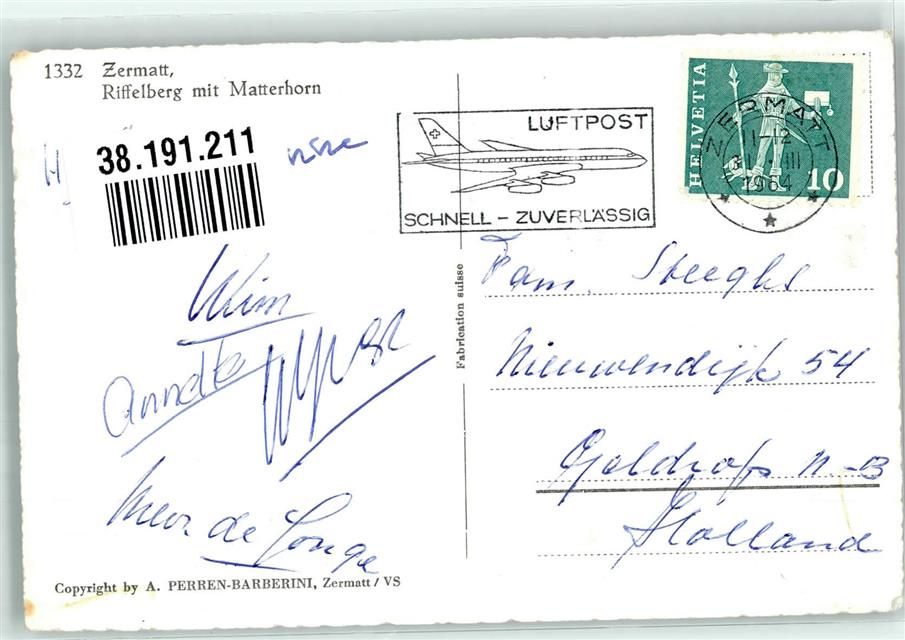 1332 Zermatt,
Riffelberg mit Matterhorn
38.191.211
LUFTPOST
SCHNELL - ZUVERLÄSSIG
HELVETIA
10
ZERMATT
11-12
1964
Wim
Annette
Mevr. de Jonge
Fabrication suisse
Fam. Steeghs
Nieuwendijk 54
Geldrop N-B
Holland
Copyright by A. PERREN-BARBERINI, Zermatt / VS